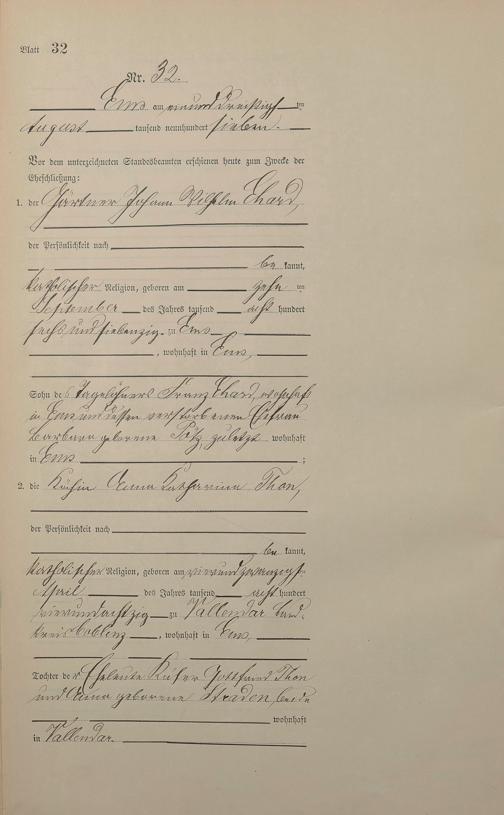 Blatt 32
Nr. 32.
Ems am einunddreißigsten
August tausend neunhundert sieben.
Vor dem unterzeichneten Standesbeamten erschienen heute zum Zwecke der
Eheschließung:
1. der Gärtner Johann Wilhelm Ehard,
der Persönlichkeit nach
be kannt,
katholischer Religion, geboren am zehn ten
September des Jahres tausend acht hundert
sechsundsiebenzig zu Ems
, wohnhaft in Ems,
Sohn des Tagelöhners Franz Ehard, wohnhaft
in Ems und dessen verstorbenen Ehefrau
Barbara geborene zuletzt wohnhaft
in Ems ;
2. die Köchin Anna Katharina Thon,
der Persönlichkeit nach
be kannt,
katholischer Religion, geboren am vierundzwanzigsten
April des Jahres tausend acht hundert
vierundachtzig zu Vallendar Land-
kreis Coblenz, wohnhaft in Ems,
Tochter der Eheleute Küfer Gottfried Thon
und Anna geborene Straden, beide
wohnhaft
in Vallendar.